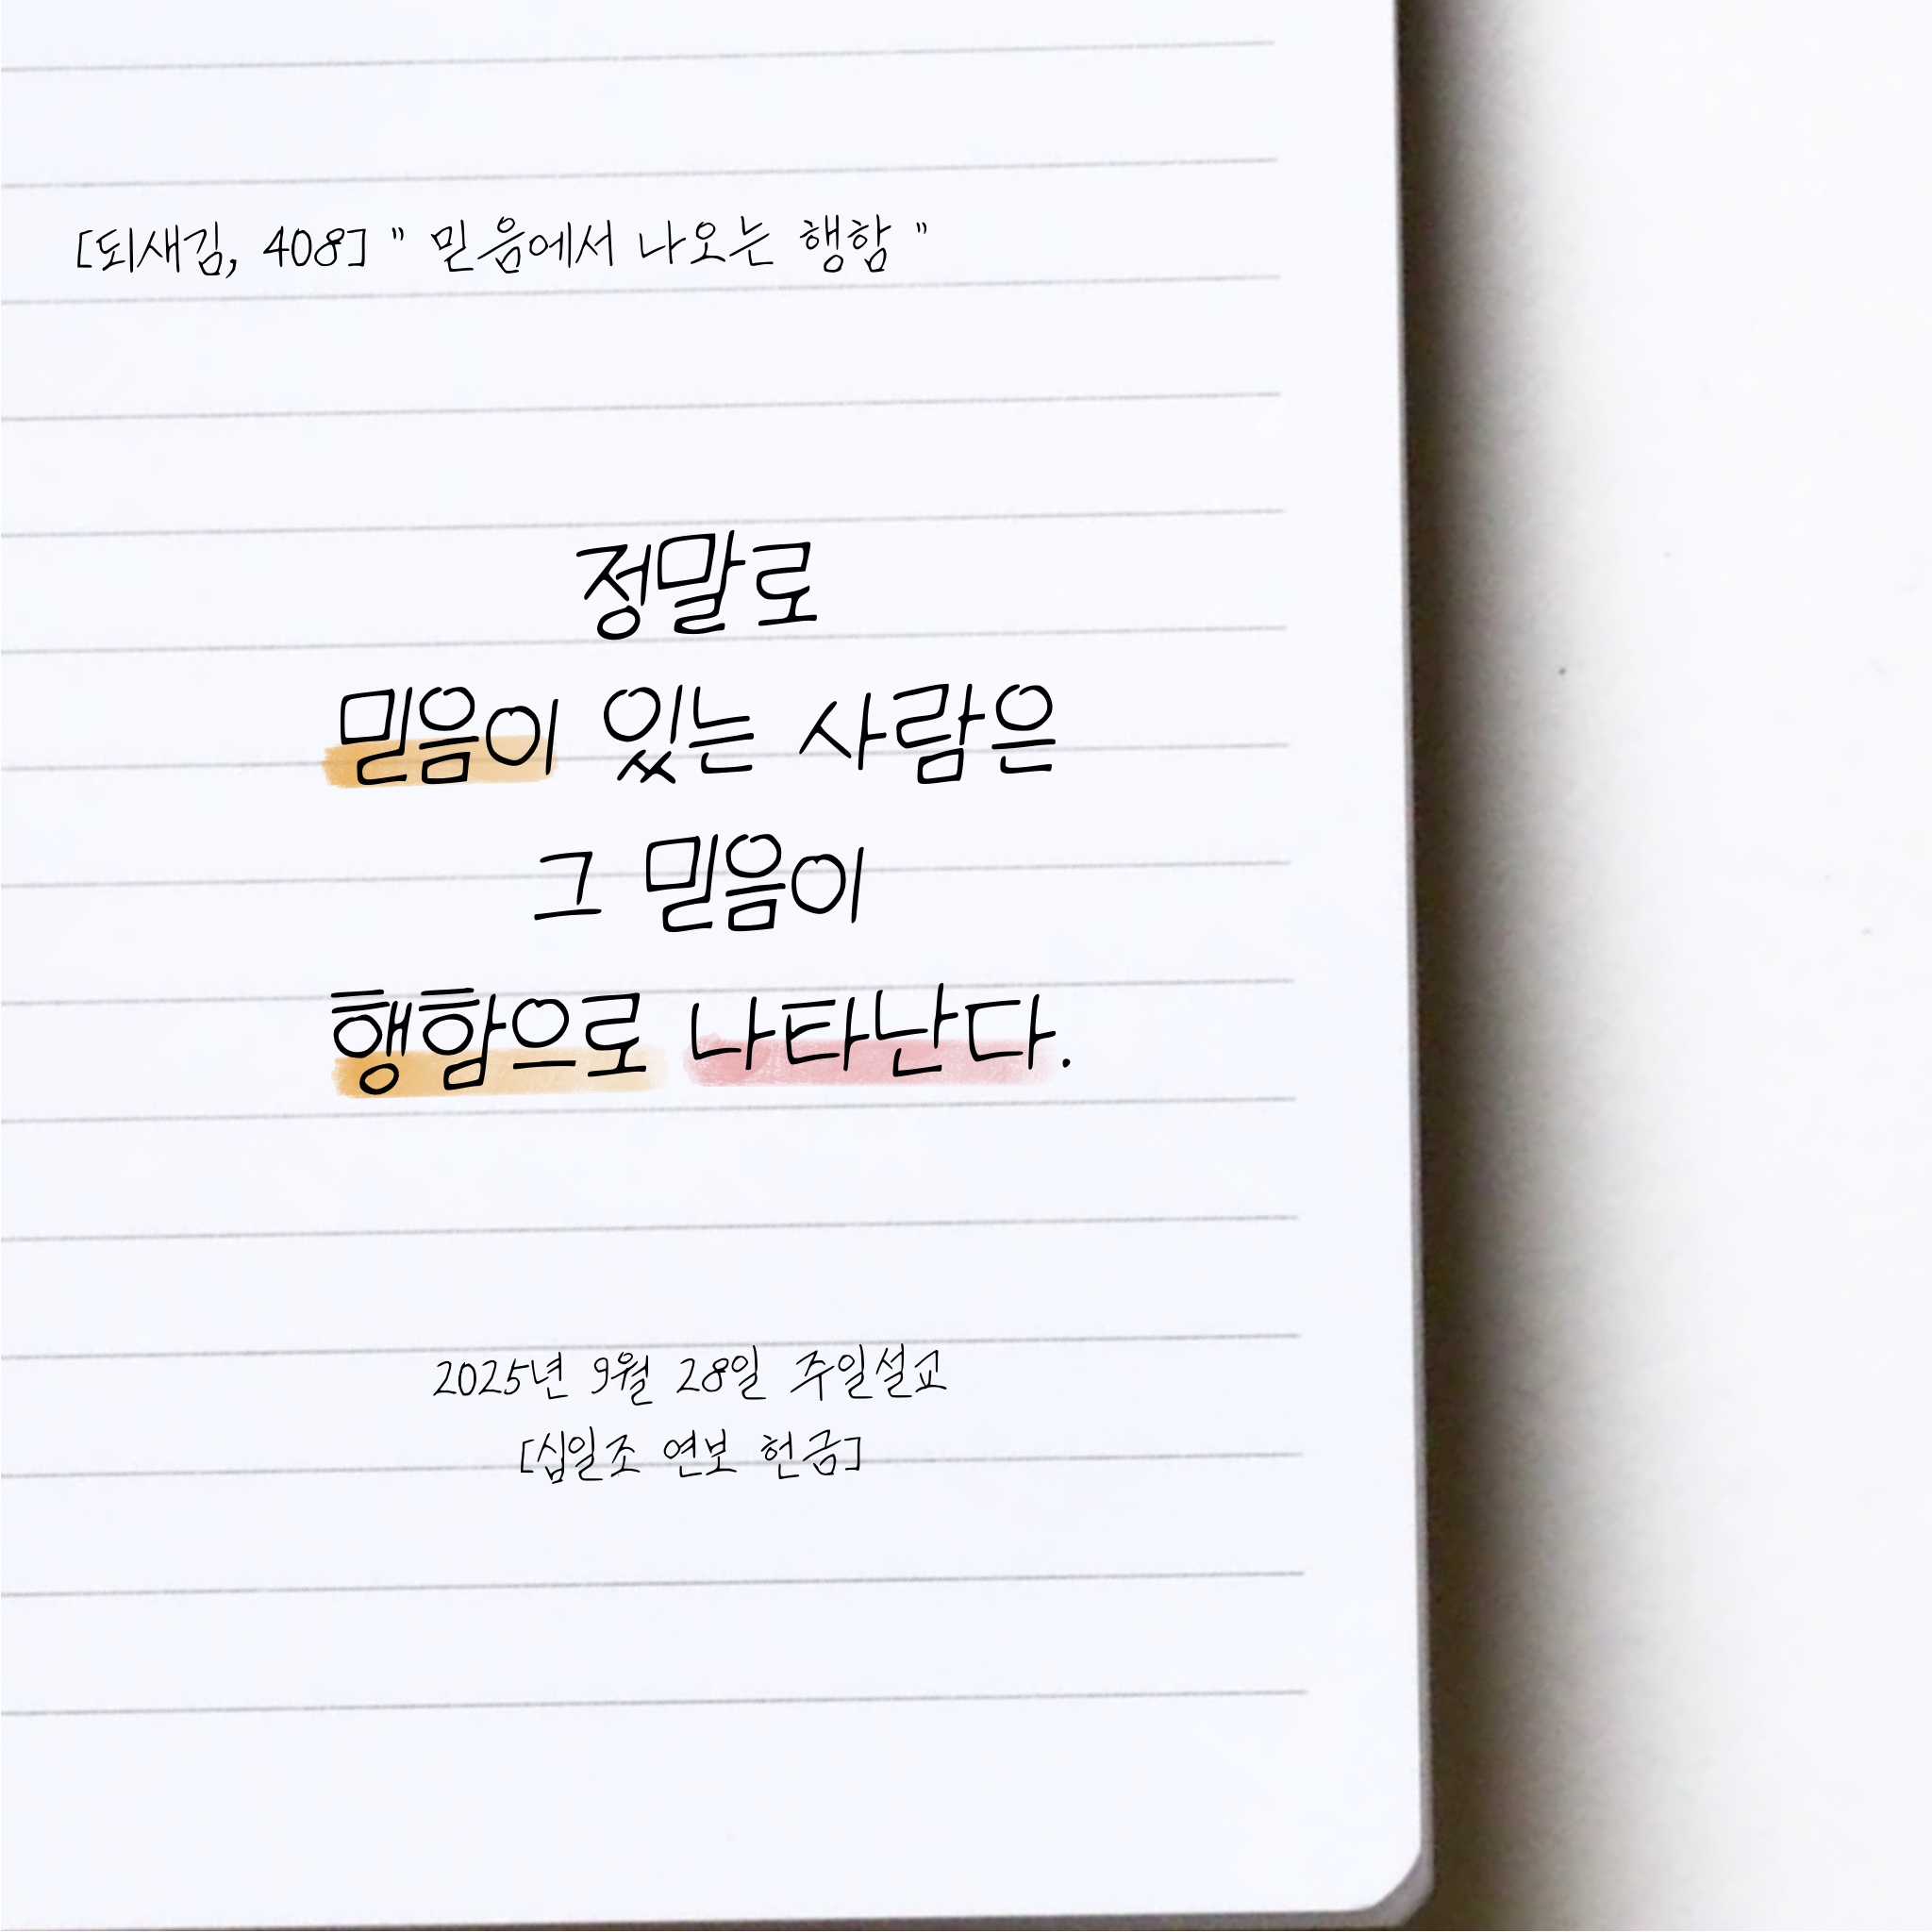 [되새김, 408] " 믿음에서 나오는 행함 "
정말로
믿음이 있는 사람은
그 믿음이
행함으로 나타난다.
2025년 9월 28일 주일설교
[십일조 연보 헌금]